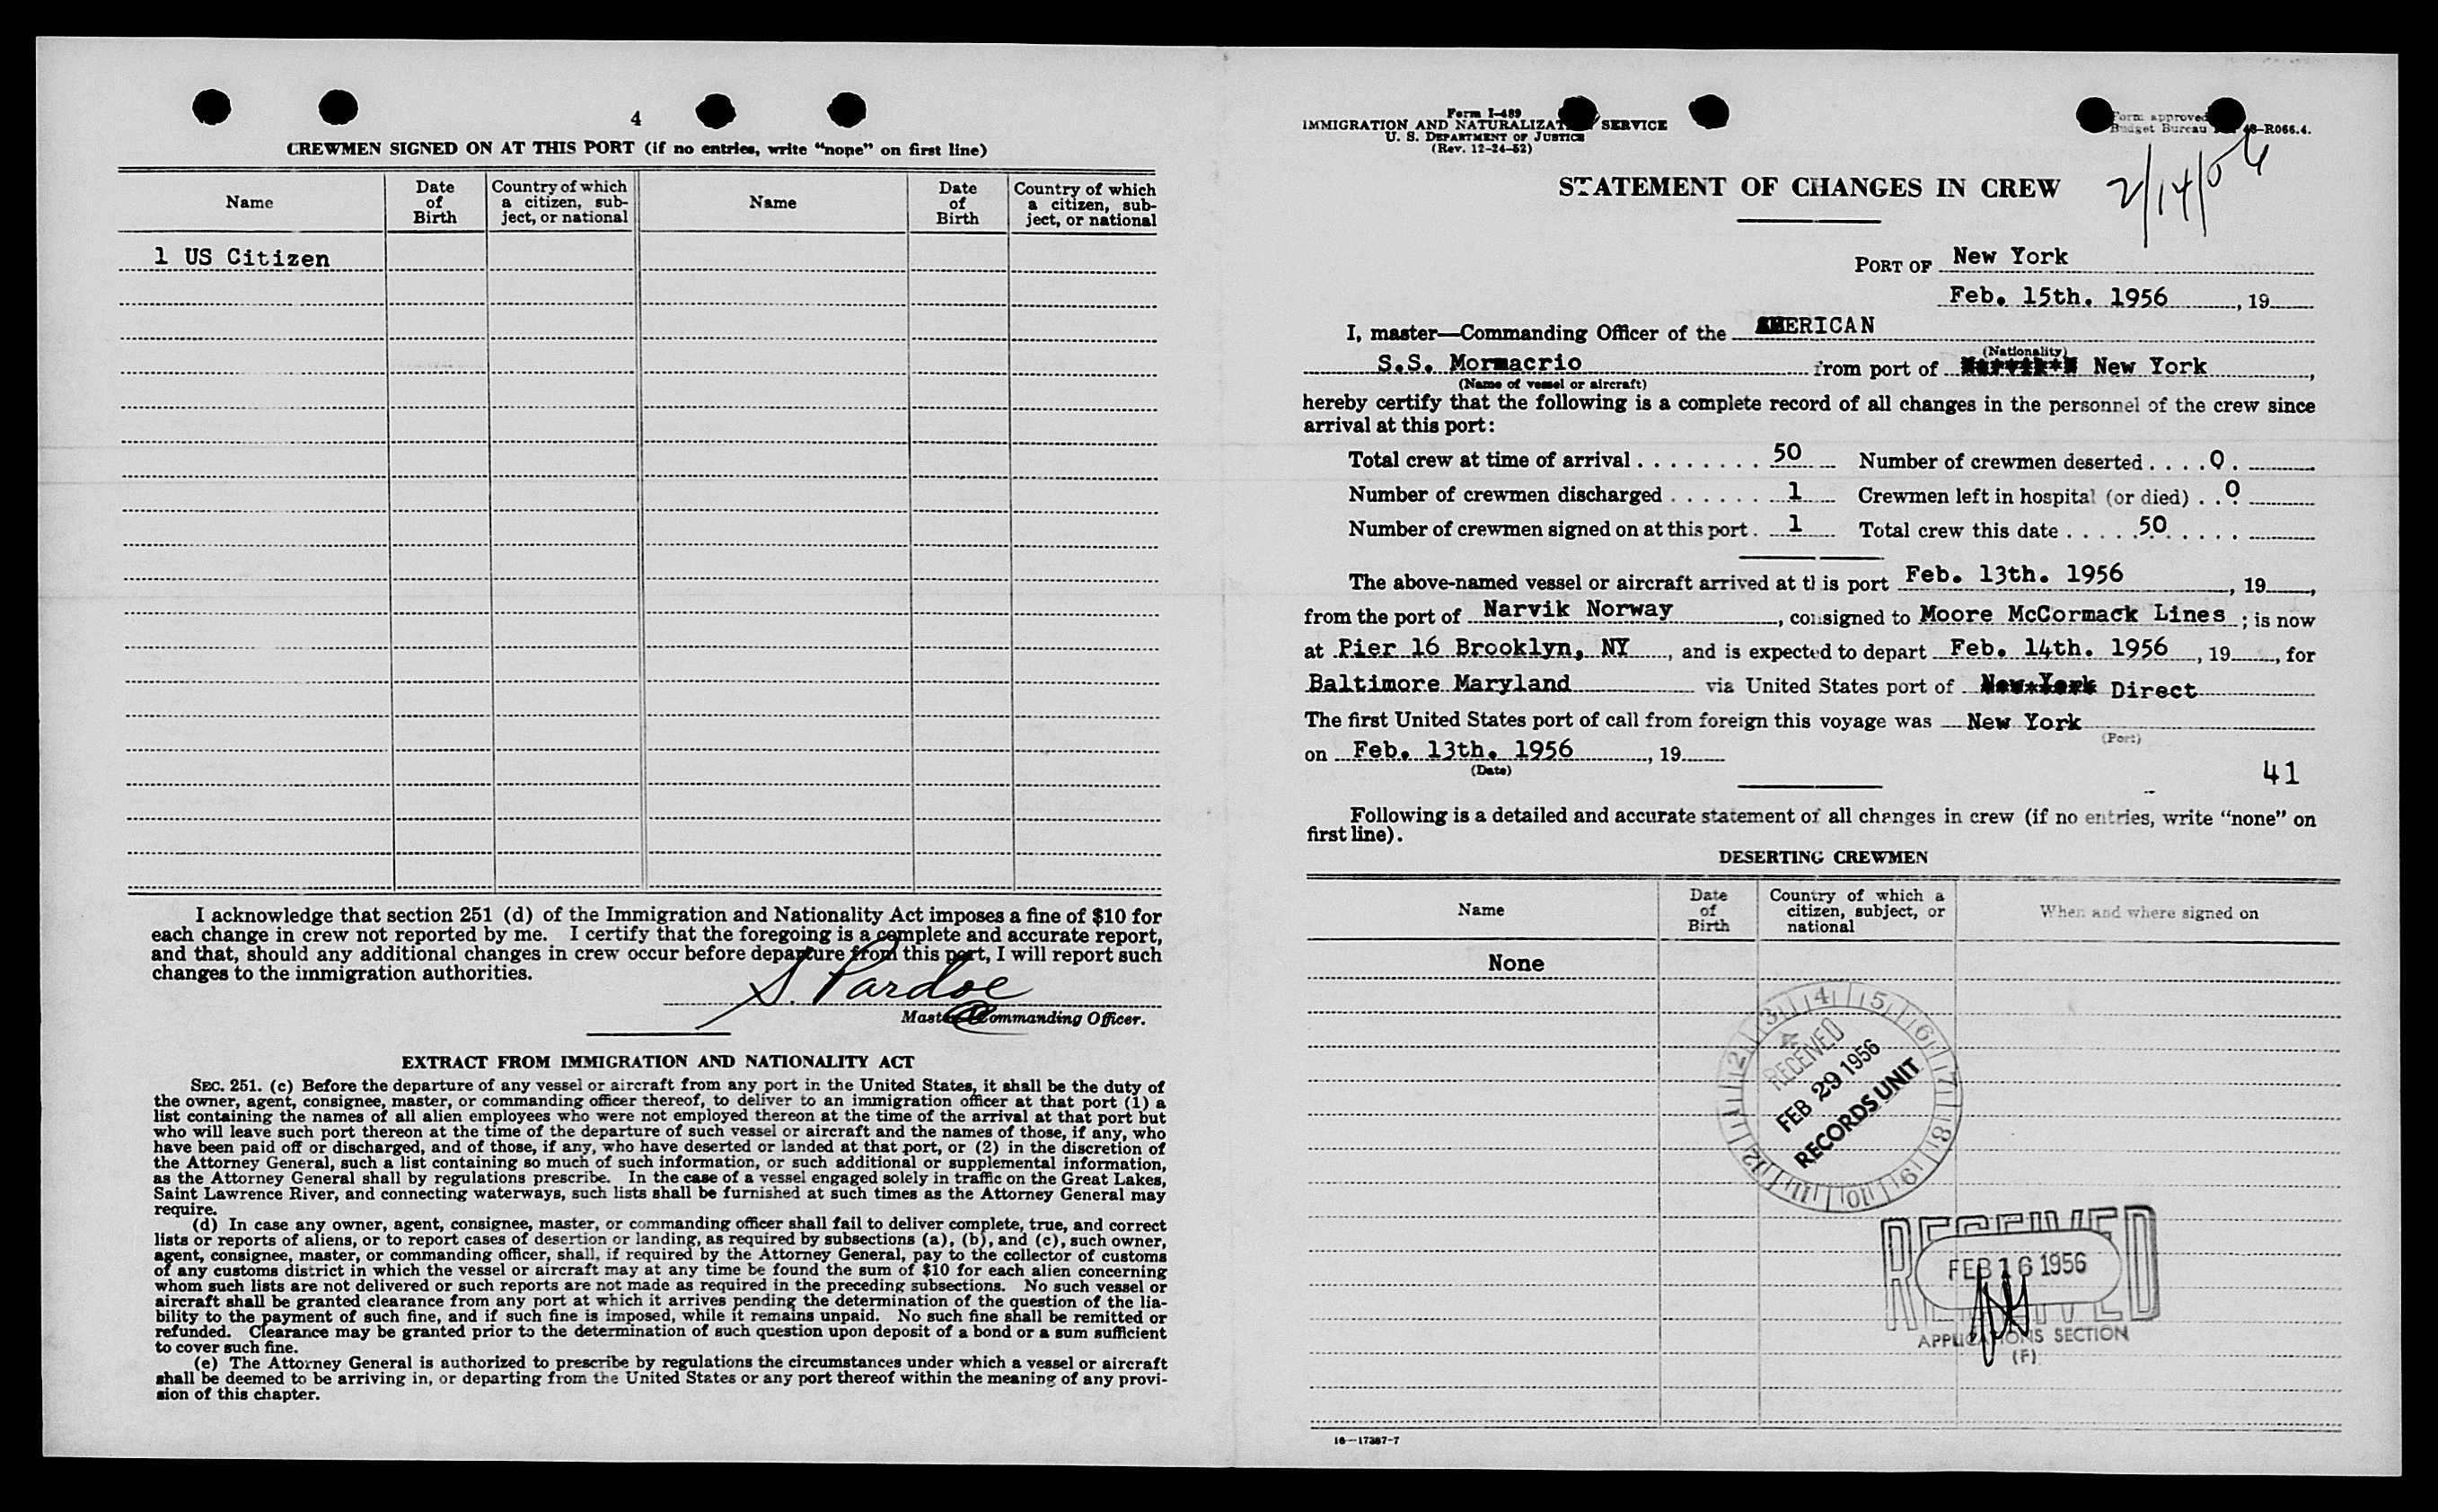 4
CREWMEN SIGNED ON AT THIS PORT (if no entries, write "none" on first line)
Name
Date of Birth
Country of which a citizen, subject, or national
Name
Date of Birth
Country of which a citizen, subject, or national
1 US Citizen
I acknowledge that section 251 (d) of the Immigration and Nationality Act imposes a fine of $10 for
each change in crew not reported by me. I certify that the foregoing is a complete and accurate report,
and that, should any additional changes in crew occur before departure from this port, I will report such
changes to the immigration authorities.
S. Pardoe
Master Commanding Officer.
EXTRACT FROM IMMIGRATION AND NATIONALITY ACT
SEC. 251. (c) Before the departure of any vessel or aircraft from any port in the United States, it shall be the duty of
the owner, agent, consignee, master, or commanding officer thereof, to deliver to an immigration officer at that port (1) a
list containing the names of all alien employees who were not employed thereon at the time of the arrival at that port but
who will leave such port thereon at the time of the departure of such vessel or aircraft and the names of those, if any, who
have been paid off or discharged, and of those, if any, who have deserted or landed at that port, or (2) in the discretion of
the Attorney General, such a list containing so much of such information, or such additional or supplemental information,
as the Attorney General shall by regulations prescribe. In the case of a vessel engaged solely in traffic on the Great Lakes,
Saint Lawrence River, and connecting waterways, such lists shall be furnished at such times as the Attorney General may
require.
(d) In case any owner, agent, consignee, master, or commanding officer shall fail to deliver complete, true, and correct
lists or reports of aliens, or to report cases of desertion or landing, as required by subsections (a), (b), and (c), such owner,
agent, consignee, master, or commanding officer, shall, if required by the Attorney General, pay to the collector of customs
of any customs district in which the vessel or aircraft may at any time be found the sum of $10 for each alien concerning
whom such lists are not delivered or such reports are not made as required in the preceding subsections. No such vessel or
aircraft shall be granted clearance from any port at which it arrives pending the determination of the question of the lia-
bility to the payment of such fine, and if such fine is imposed, while it remains unpaid. No such fine shall be remitted or
refunded. Clearance may be granted prior to the determination of such question upon deposit of a bond or a sum sufficient
to cover such fine.
(e) The Attorney General is authorized to prescribe by regulations the circumstances under which a vessel or aircraft
shall be deemed to be arriving in, or departing from the United States or any port thereof within the meaning of any provi-
sion of this chapter.
Form I-489
IMMIGRATION AND NATURALIZATION SERVICE
U. S. DEPARTMENT OF JUSTICE
(Rev. 12-24-52)
Form approved
Budget Bureau 43-R066.4.
2/14/56
STATEMENT OF CHANGES IN CREW
PORT OF New York
Feb. 15th. 1956, 19
I, master—Commanding Officer of the AMERICAN
(Nationality)
S.S. Mormacrio from port of New York,
(Name of vessel or aircraft)
hereby certify that the following is a complete record of all changes in the personnel of the crew since
arrival at this port:
Total crew at time of arrival . . . . . . . . 50 Number of crewmen deserted . . . . 0
Number of crewmen discharged . . . . . . 1 Crewmen left in hospital (or died) . . 0
Number of crewmen signed on at this port . 1 Total crew this date . . . . . 50 . . . . .
The above-named vessel or aircraft arrived at this port Feb. 13th. 1956, 19,
from the port of Narvik Norway, consigned to Moore McCormack Lines ; is now
at Pier 16 Brooklyn, NY, and is expected to depart Feb. 14th. 1956, 19, for
Baltimore Maryland via United States port of Direct
The first United States port of call from foreign this voyage was New York
(Port)
on Feb. 13th. 1956, 19
(Date)
41
Following is a detailed and accurate statement of all changes in crew (if no entries, write "none" on
first line).
DESERTING CREWMEN
Name
Date of Birth
Country of which a citizen, subject, or national
When and where signed on
None
1 2 3 4 5 6 7 8 9 10 11 12
RECEIVED
FEB 29 1956
RECORDS UNIT
RECEIVED
FEB 16 1956
APPLICATIONS SECTION
(F)
16—17387-7